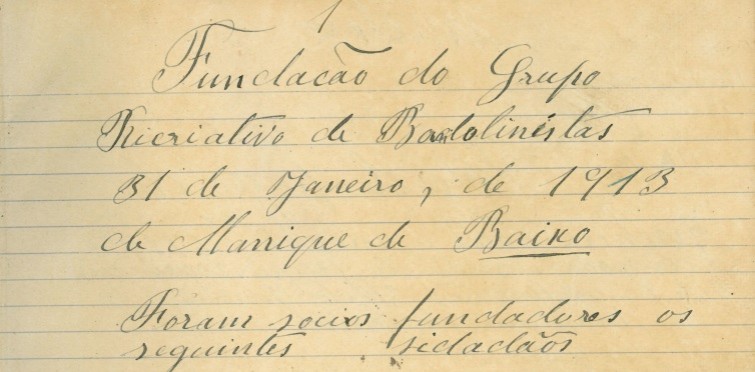 1
Fundacão do Grupo
Ricriativo de Bandolinistas
31 de Janeiro, de 1913
de Manique de Baixo
Foram socios fundadores os
seguintes sidadãos